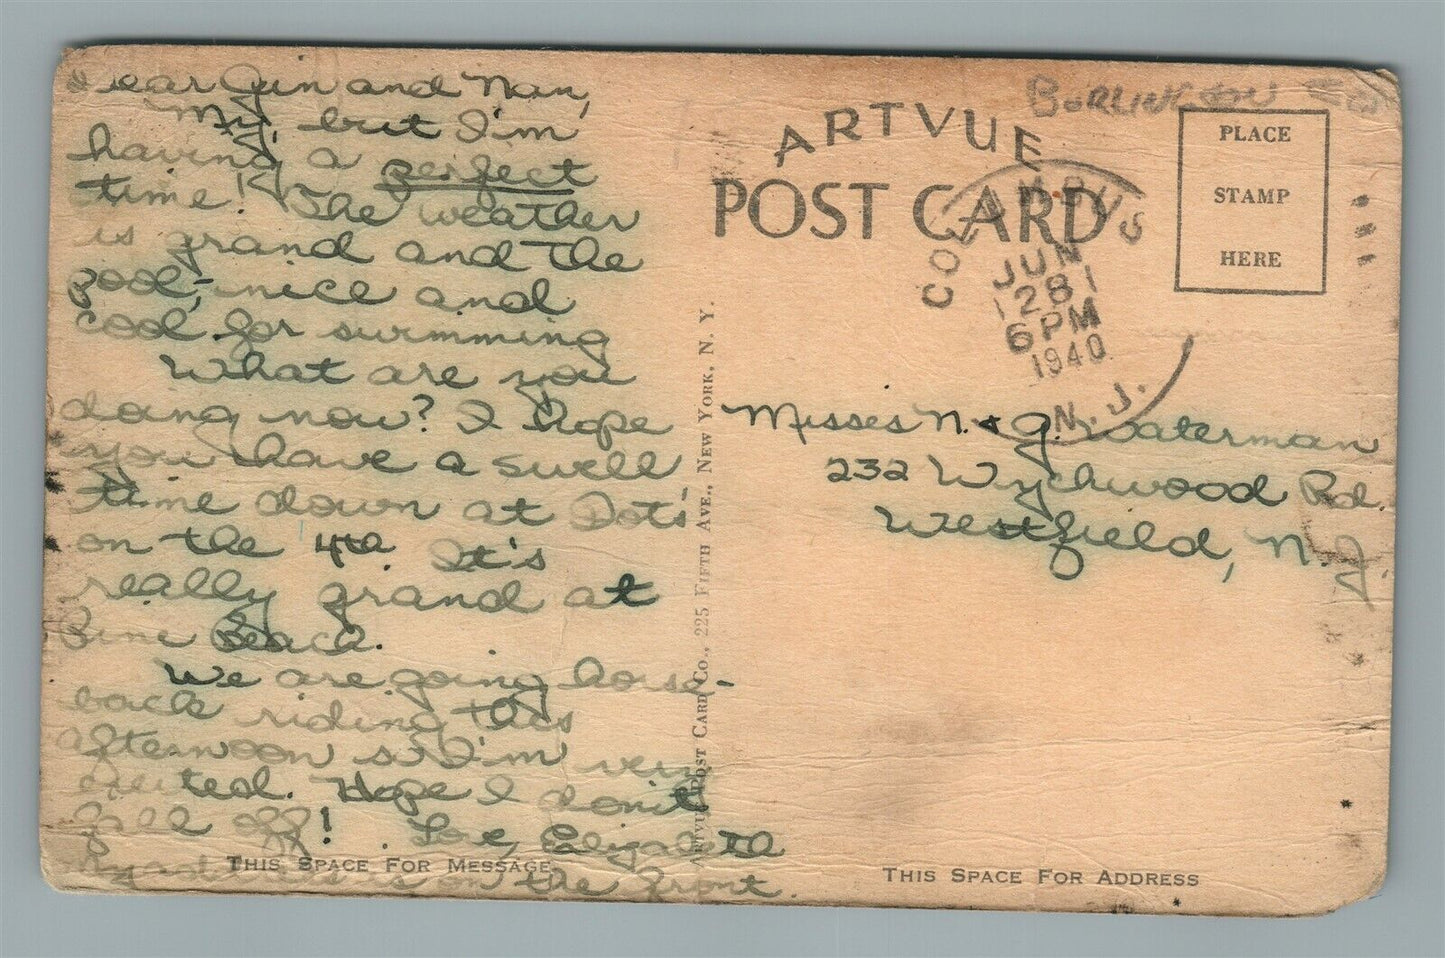 Dear Jin and Nan,
My, but I'm
having a perfect
time! The weather
is grand and the
pool, - nice and
cool for swimming
What are you
doing now? I hope
you have a swell
time down at Dot's
on the 4th. It's
really grand at
Pine Beach.
We are going horse-
back riding this
afternoon so I'm very
excited. Hope I don't
fall off! Love, Elizabeth
is on the front.
THIS SPACE FOR MESSAGE
ARTVUE POST CARD CO., 225 FIFTH AVE., NEW YORK, N. Y.
ARTVUE
POST CARD
COLUMBUS
JUN
28
6 PM
1940
N. J.
PLACE
STAMP
HERE
Misses N. & J. Waterman
232 Wychwood Rd.
Westfield, N. J.
THIS SPACE FOR ADDRESS